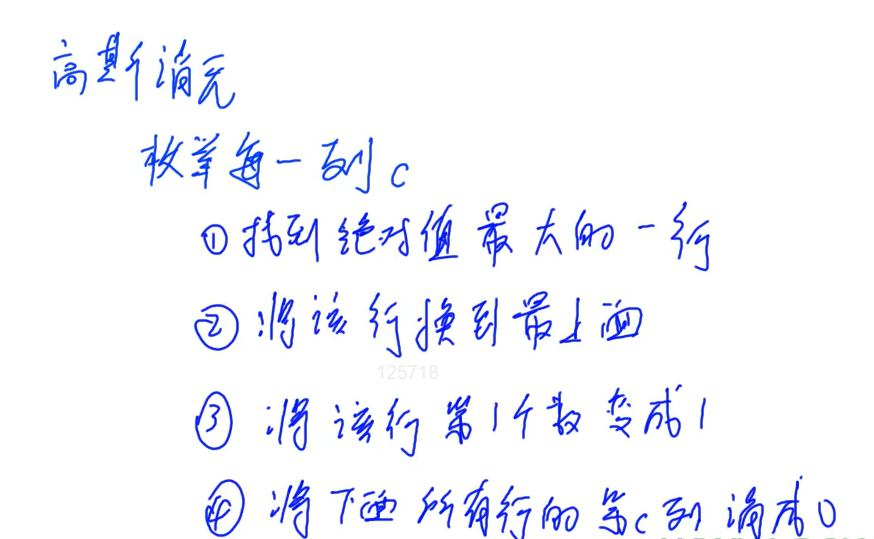 高斯消元
枚举每一列c
①找到绝对值最大的一行
②将该行换到最上面
125718
③将该行第1个数变成1
④将下面所有行的第c列消成0